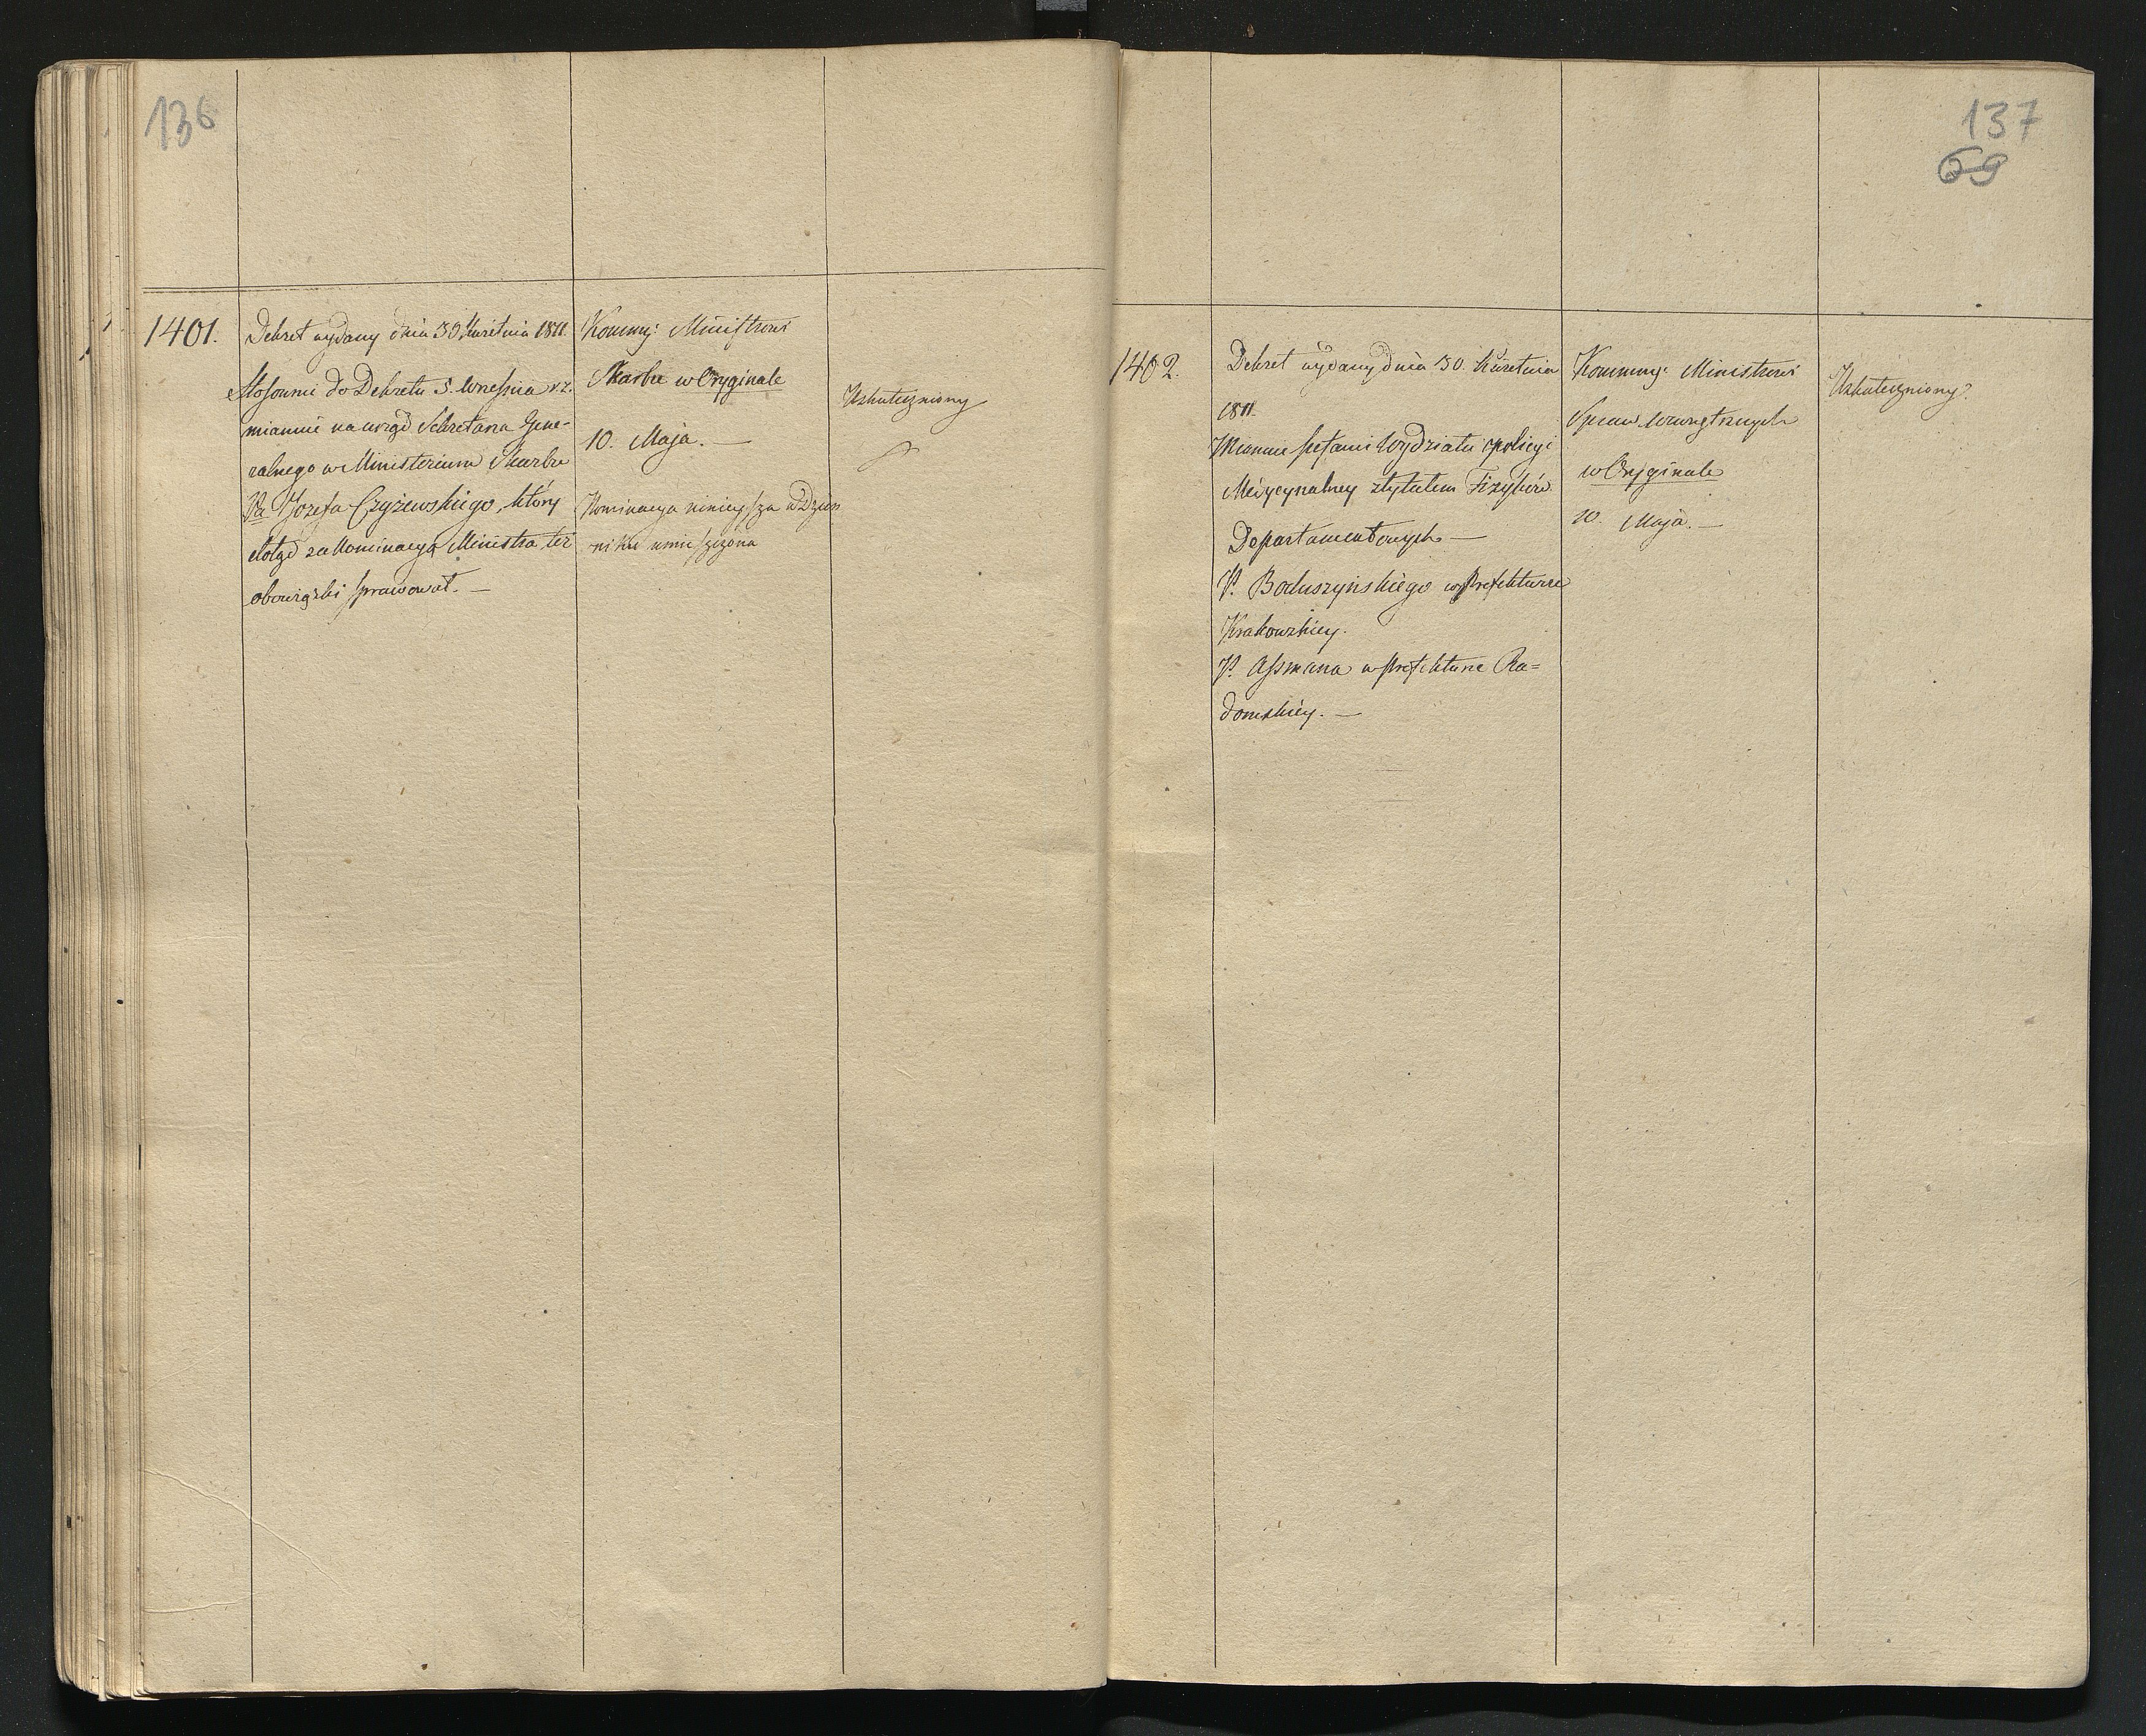 136
1401.
Dekret wydany dnia 30 Kwietnia 1811.
Stosownie do Dekretu 5. Września r. z.
mianuie na urząd Sekretarza Gene-
ralnego w Ministerium Skarbu
Pa Jozefa Czyżewskiego, który
dotąd za Nominacyą Ministra też
obowiązki sprawował. —
Kommuj: Ministrowi
Skarbu w Oryginale
10. Maja. —
Nominacya ninieysza w Dzien
niku umieszczona
Uskuteczniony
137
69
1402.
Dekret wydany dnia 30. Kwietnia
1811.
Mianuie szefami Wydziału policyi
Medycynalney z tytułem Fizyków
Departamentowych —
P. Boduszyńskiego w Prefekturze
Krakowskiey.
P. Assmana w prefekturze Ra=
domskiéy. —
Kommuj: Ministrowi
Spraw Wewnętrznych
w Oryginale
10. Maja. —
Uskuteczniony.